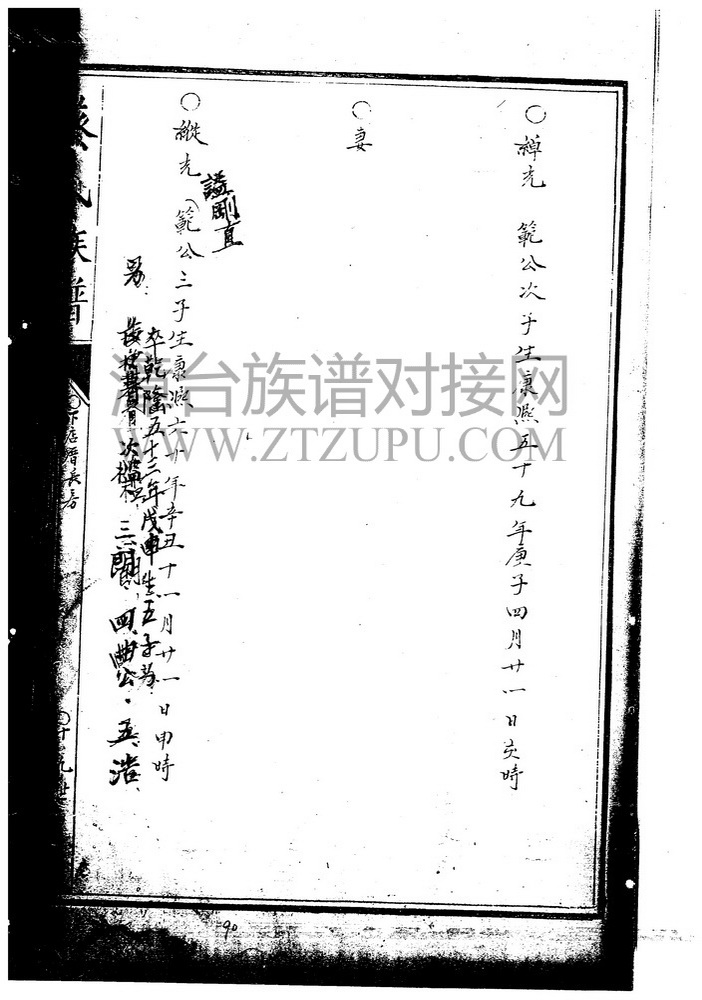 ○綽光 範公次子生康熙五十九年庚子四月廿一日亥時
○妻
諡剛直
○縱光 範公三子生康熙六十年辛丑十一月廿一日申時
卒乾隆五十三年戊申生五子為
男：長 次 三 四曲公、五浩
氏族譜
下店厝長房
○十九世
90
漳台族谱对接网
WWW.ZTZUPU.COM